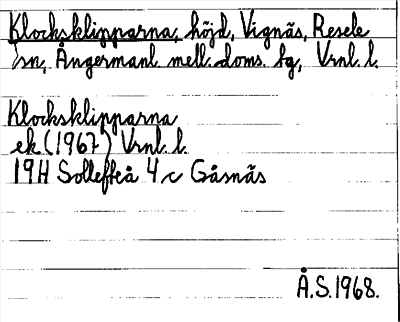 Klocksklipparna, höjd, Vignäs, Resele
sn, Ångermanl. mell. doms. fg, Vrnl. l.
Klocksklipparna
ek. (1967) Vrnl. l.
19H Sollefteå 4 c Gåsnäs
Å.S. 1968.